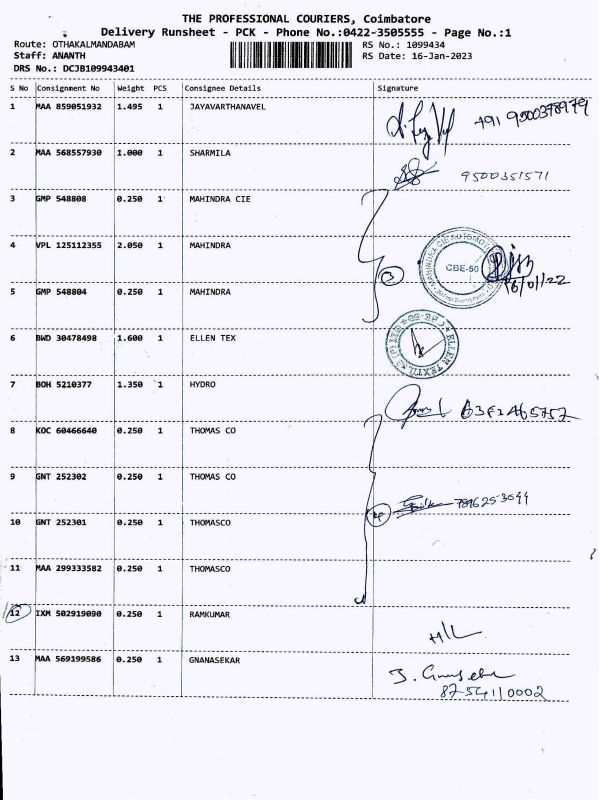 THE PROFESSIONAL COURIERS, Coimbatore
Delivery Runsheet - PCK - Phone No.:0422-3505555 - Page No.:1
Route: OTHAKALMANDABAM RS No.: 1099434
Staff: ANANTH RS Date: 16-Jan-2023
DRS No.: DCJB109943401
S No Consignment No Weight PCS Consignee Details Signature
1 MAA 859051932 1.495 1 JAYAVARTHANAVEL +91 9500378979
2 MAA 568557930 1.000 1 SHARMILA 9500351571
3 GMP 548808 0.250 1 MAHINDRA CIE
4 VPL 125112355 2.050 1 MAHINDRA 3 CBE-50
16/01/22
5 GMP 548804 0.250 1 MAHINDRA
6 BWD 30478498 1.600 1 ELLEN TEX
7 BOH 5210377 1.350 1 HYDRO
8 KOC 60466640 0.250 1 THOMAS CO
9 GNT 252302 0.250 1 THOMAS CO
10 GNT 252301 0.250 1 THOMASCO
11 MAA 299333582 0.250 1 THOMASCO
12 IXM 502919090 0.250 1 RAMKUMAR
13 MAA 569199586 0.250 1 GNANASEKAR
8754110002